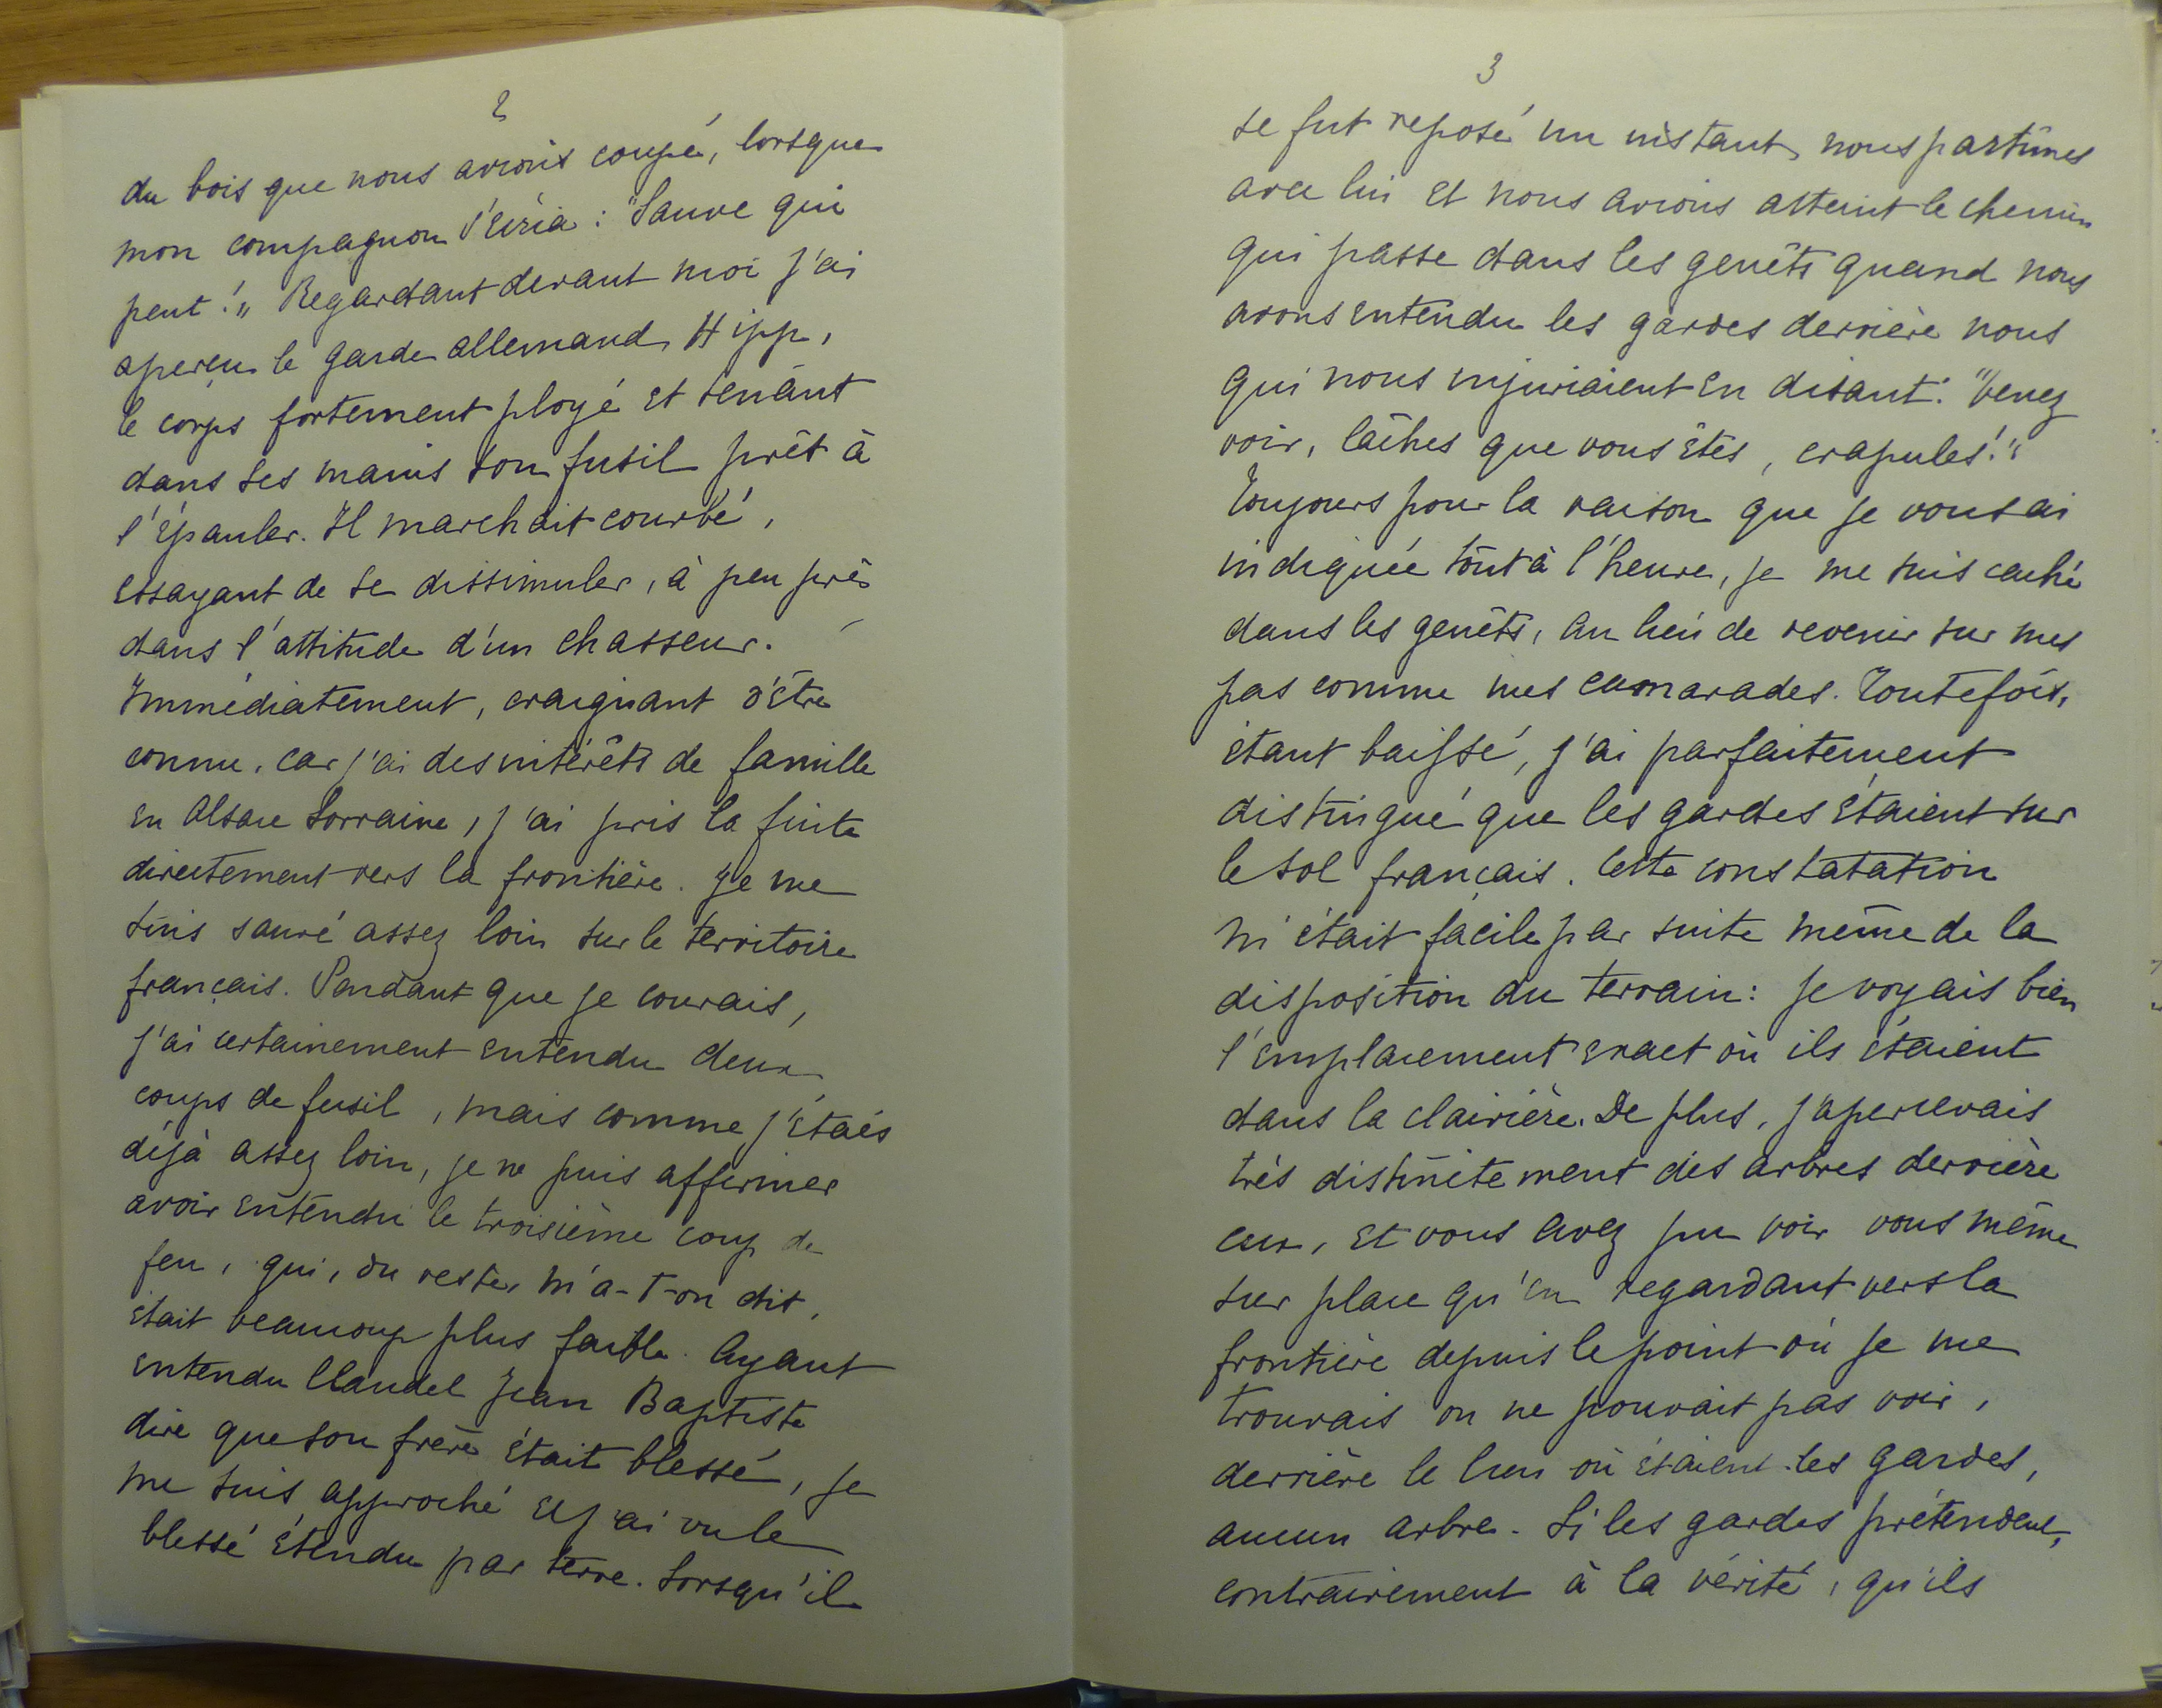 2
du bois que nous avions coupé, lorsque
mon compagnon s'écria : "Sauve qui
peut !" Regardant devant moi j'ai
aperçu le garde allemand Hipp,
le corps fortement ployé et tenant
dans ses mains son fusil prêt à
l'épauler. Il marchait courbé,
essayant de se dissimuler, à peu près
dans l'attitude d'un chasseur.
Immédiatement, craignant d'être
connu, car j'ai des intérêts de famille
en Alsace Lorraine, j'ai pris la fuite
directement vers la frontière. Je me
suis sauvé assez loin sur le territoire
français. Pendant que je courais,
j'ai certainement entendu deux
coups de fusil, mais comme j'étais
déjà assez loin, je ne puis affirmer
avoir entendu le troisième coup de
feu, qui, du reste, m'a-t-on dit,
était beaucoup plus faible. Ayant
entendu Claudel Jean Baptiste
dire que son frère était blessé, je
me suis approché et j'ai vu le
blessé étendu par terre. Lorsqu'il
3
se fut reposé un instant, nous partîmes
avec lui et nous avions atteint le chemin
qui passe dans les genêts quand nous
avons entendu les gardes derrière nous
qui nous injuriaient en disant : "Venez
voir, lâches que vous êtes, crapules !"
Toujours pour la raison que je vous ai
indiquée tout à l'heure, je me suis caché
dans les genêts, au lieu de revenir sur mes
pas comme mes camarades. Toutefois,
étant baissé, j'ai parfaitement
distingué que les gardes étaient sur
le sol français. Cette constatation
m'était facile par suite même de la
disposition du terrain : je voyais bien
l'emplacement exact où ils étaient
dans la clairière. De plus, j'apercevais
très distinctement des arbres derrière
eux, et vous avez pu voir vous même
sur place qu'en regardant vers la
frontière depuis le point où je me
trouvais on ne pouvait pas voir,
derrière le lieu où étaient les gardes,
aucun arbre. Si les gardes prétendent,
contrairement à la vérité, qu'ils